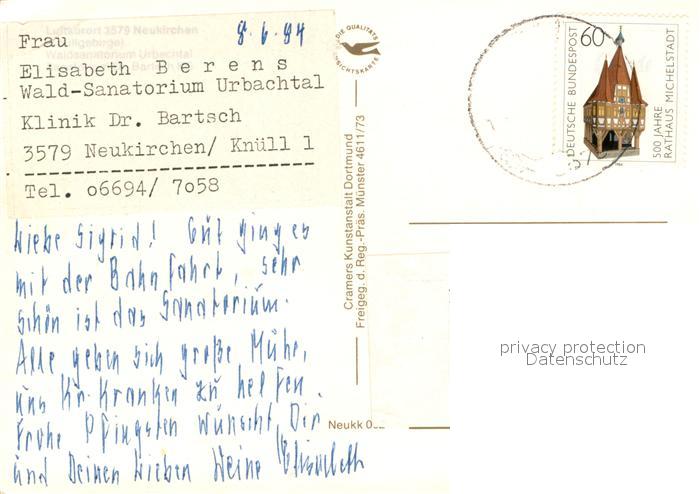 Luftkurort 3579 Neukirchen
Waldsanatorium Urbachtal
Frau
8.6.84
Elisabeth Berens
Wald-Sanatorium Urbachtal
Klinik Dr. Bartsch
3579 Neukirchen/ Knüll 1
Tel. 06694/ 7058
Liebe Sigrid! Gut ging es
mit der Bahnfahrt, sehr
schön ist das Sanatorium.
Alle geben sich große Mühe,
uns Kr. Kranken zu helfen.
Frohe Pfingsten wünscht Dir
und Deinen Lieben Deine Elisabeth
DIE QUALITÄTS
ANSICHTSKARTE
Cramers Kunstanstalt Dortmund
Freigeg. d. Reg.-Präs. Münster 4611/73
Neukk
DEUTSCHE BUNDESPOST
60
500 JAHRE
RATHAUS MICHELSTADT
privacy protection
Datenschutz